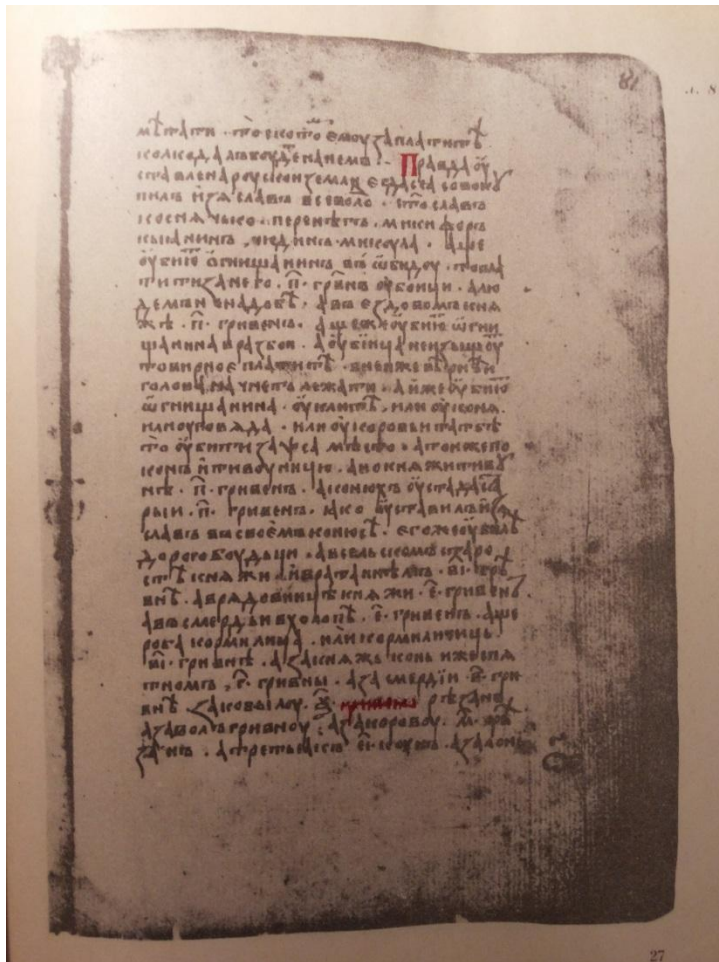 81
л. 8
мѣтати · то ското емоу заплатитѣ
колко далъ боудеть на немъ · Правда оу
ставлена роуськои земли егда сѧ совокоу
пилъ изѧславъ всеволодъ · стославъ
коснячько · перенѣгъ · микифоръ
кыянинъ · чюдинъ · микоула · аще
оубьють огнищанина въ обидоу · то пла
тити за нь · п҃ · гривенъ оубоици · а лю
демъ не надобѣ · а въ ездовомъ кня
жѣ · п҃ · гривенъ · аще оубиють огни
щанина в разбои · а оубиица не изыщоу
то вирное платитѣ · в неи же вири
голова начнетъ лежати · а иже оубиють
огнищанина · оу клѣти · или оу коня ·
или оу говяда · или оу коровьи татьбѣ
то оубити за пса мѣсто · а то же по
конъ и тивоуницю · а но княжи тивоу
нѣ · п҃ · гривенъ · а конюхъ оу стада ста
рыи · п҃ · гривенъ · яко оуставилъ изѧ
славъ въ своемъ конюсѣ · его же оубилѣ
дорогобоудьци · а въ сельскомъ старо
стѣ княжи · и в ратаинѣмъ · в҃і · грив
нѣ · а в рядовници княжи · е҃ · гривенъ
а въ смердѣ и в холопѣ · е҃ · гривенъ · аще
роба кормилица · или кормиличиць
в҃і · гривнѣ · а за княжь конь иже с пя
тномъ · г҃ · гривны · а за смердѣи · в҃ · гри
внѣ · за кобылоу · ѯ҃ · гривенъ рѣзанъ
а за волъ гривноу · а за коровоу · м҃ · рѣ
занъ · а третьякъ · е҃і · коунъ · а за лонь
27